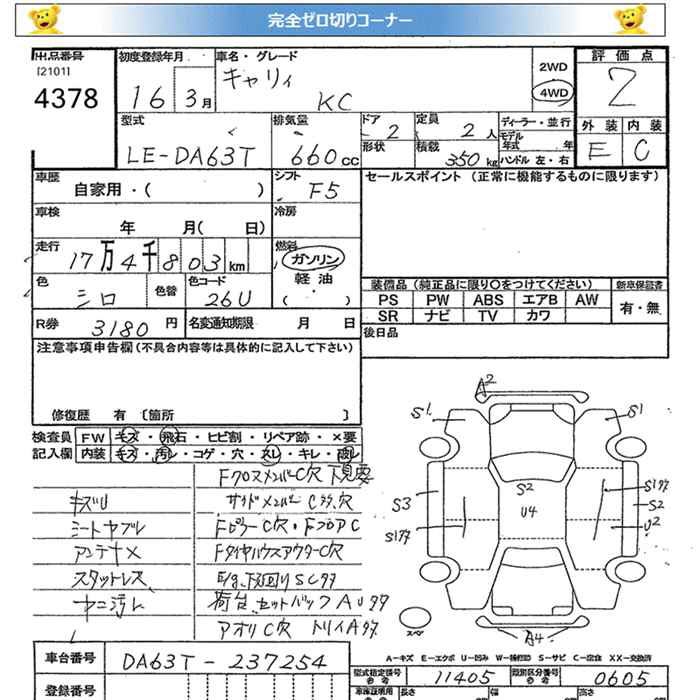 完全ゼロ切りコーナー
出品番号 初度登録年月 車名・グレード 評価点
[2101]
4378
16 3月
キャリィ
KC
2WD
4WD
2
型式 排気量 ドア 定員 ディーラー・並行 外装 内装
2 2人 モデル年式 年
LE-DA63T 660cc 形状 積載 350kg ハンドル 左・右 E C
車歴 シフト セールスポイント(正常に機能するものに限ります)
自家用・( ) F5
車検 冷房
年 月( 日)
走行 燃料
17万4千803km ガソリン
軽油
( )
色 色替 色コード 装備品(純正品に限り○をつけてください) 新車保証書
シロ 26U
PS PW ABS エアB AW 有・無
SR ナビ TV カワ
R券 3180円 名変通知期限 月 日 後日品
注意事項申告欄(不具合内容等は具体的に記入して下さい)
修復歴 有〔箇所 〕
検査員 FW キズ・飛石・ヒビ割・リペア跡・×要
記入欄 内装 キズ・汚レ・コゲ・穴・スレ・キレ・破レ
Fクロスメンバー C穴 下見要
キズU サイドメンバー Cサ、穴
シートヤブレ Fピラー C穴・Fフロア C
アンテナ× FタイヤハウスアウターC穴
スタットレス E/g、下回り SCサ
ヤニ汚レ 荷台、セットバック AUササ
アオリ C穴 トリイ Aササ
A2
S1 S1
S3 S2 S2
U4
U2
スペア
A4
A-キズ E-エクボ U-凹み W-補修跡 S-サビ C-腐食 XX-交換済
車台番号 DA63T-237254
型式指定番号 参考 11405 類別区分番号 参考 0605
登録番号 車検証項用 参考 長さ 幅 高さ